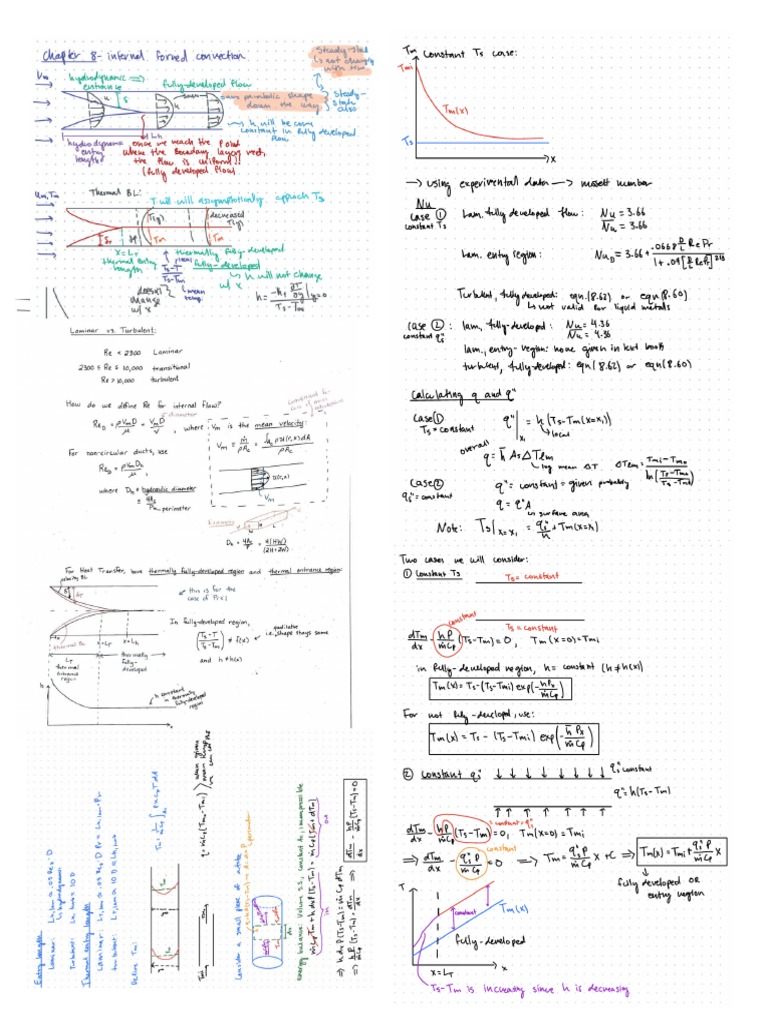 Chapter 8- internal forced convection
Steady-state
↳ not changing
with time
Vm
hydrodynamic ⟹
entrance
fully-developed flow
same parabolic shape
down the way
Steady-
state
also
↳ h will become
constant in fully developed
flow
hydrodynamic
entry
length
once we reach the point
where the Boundary layers meet,
the flow is uniform!!
(fully developed flow)
Thermal BL:
T will will assymptotically approach Ts
Um, Tm
T(y)
decreased
T(y)
Tm
Tm
x = LT
thermal entry
length
thermally fully-developed
fully-developed
↳ h will not change
w/ x
Ts-T
Ts-Tm
mean
temp.
doesn't
change
w/ x
h = -k ∂T/∂y|y=0 / Ts-Tm
Laminar vs. Turbulent:
Re < 2300 Laminar
2300 ≤ Re ≤ 10,000 transitional
Re > 10,000 turbulent
How do we define Re for internal flow?
diameter
ReD = ρVmD/μ = VmD/ν , where Vm is the mean velocity:
Vm = ṁ/ρAc = ∫Ac ρu(r,x)dA / ρAc
For non-circular ducts, use
ReD = ρVmDh/μ ,
where Dh = hydraulic diameter
= 4Ac/P
perimeter
u(r,x)
Vm
Example
Dh = 4Ac/P = 4(HW)/(2H+2W)
For Heat Transfer, have thermally fully-developed region and thermal entrance region:
velocity BL
this is for the
case of Pr<1
In fully-developed region,
(Ts-T/Ts-Tm) ≠ f(x)
qualitative
i.e., shape stays same
and h ≠ h(x)
thermal BL
x=LT
x=Lh
LT
thermal
entrance
region
thermally
fully-
developed
h
h constant
in thermally
fully-developed
region
x
Entry Lengths
Laminar: Lh,lam ≈ .05 ReD D
↳ hydrodynamic
Turbulent: Lh,turb ≈ 10 D
Thermal entry lengths
Laminar: LT,lam ≈ .05 ReD D Pr = Lh,lam · Pr
turbulent: LT,turb ≈ 10 D ≈ Lh,turb
Define Tm:
Consider a small piece of a tube
perimeter
dx
Energy balance: Volume s.s, constant cp, incompressible
ṁCpTm + h dx P (Ts-Tm) = ṁCp(Tm + dTm)
in
out
⟹ h dx P (Ts-Tm) = ṁ Cp dTm
⟹ hP/ṁCp (Ts-Tm) = dTm/dx ⟹
dTm/dx - hP/ṁCp (Ts-Tm) = 0
Tm Constant Ts case:
Tmi
Tm(x)
Ts
x
→ using experimental data → nusselt number
Nu
case ① Lam. fully developed flow: Nu = 3.66
constant Ts
Nu = 3.66
Lam. entry region: NuD = 3.66 + .0668 D/L Re Pr / 1 + .04 [D/L Re Pr]^2/3
Turbulent, fully-developed: eqn. (8.62) or eqn (8.60)
↳ not valid for liquid metals
case ②: lam. fully-developed: Nu = 4.36
constant qs"
Nu = 4.36
lam., entry-region: none given in text book
turbulent, fully-developed: eqn (8.62) or eqn (8.60)
Calculating q and q"
Case ①
Ts = constant
q"|x1 = h (Ts-Tm(x=x1))
↳ local
overall
q = h̄ As ΔTlm
↳ log mean ΔT
ΔTlm = Tmi - Tmo / ln(Ts-Tmo/Ts-Tmi)
Case ②
qs" = constant
q" = constant = given probably
q = q" A
↳ surface area
Note: Ts|x=x1 = qs"/h + Tm(x=x1)
Two cases we will consider:
① Constant Ts
Ts = constant
Ts = constant
constant
dTm/dx - hP/ṁCp (Ts-Tm) = 0, Tm(x=0) = Tmi
in fully-developed region, h = constant (h ≠ h(x))
Tm(x) = Ts - (Ts-Tmi) exp(-hPx/ṁCp)
For not fully-developed, use:
Tm(x) = Ts - (Ts-Tmi) exp(-h̄Px/ṁCp)
② Constant qs"
qs" constant
q" = h(Ts-Tm)
= constant = qs"
dTm/dx - hP/ṁCp (Ts-Tm) = 0, Tm(x=0) = Tmi
constant
⟹ dTm/dx - qs"P/ṁCp = 0 ⟹ Tm = qs"P/ṁCp x + C ⟹ Tm(x) = Tmi + qs"P/ṁCp x
↳ fully developed OR
entry region
T
Tm(x)
constant
fully-developed
x = LT
x
Ts-Tm is increasing since h is decreasing